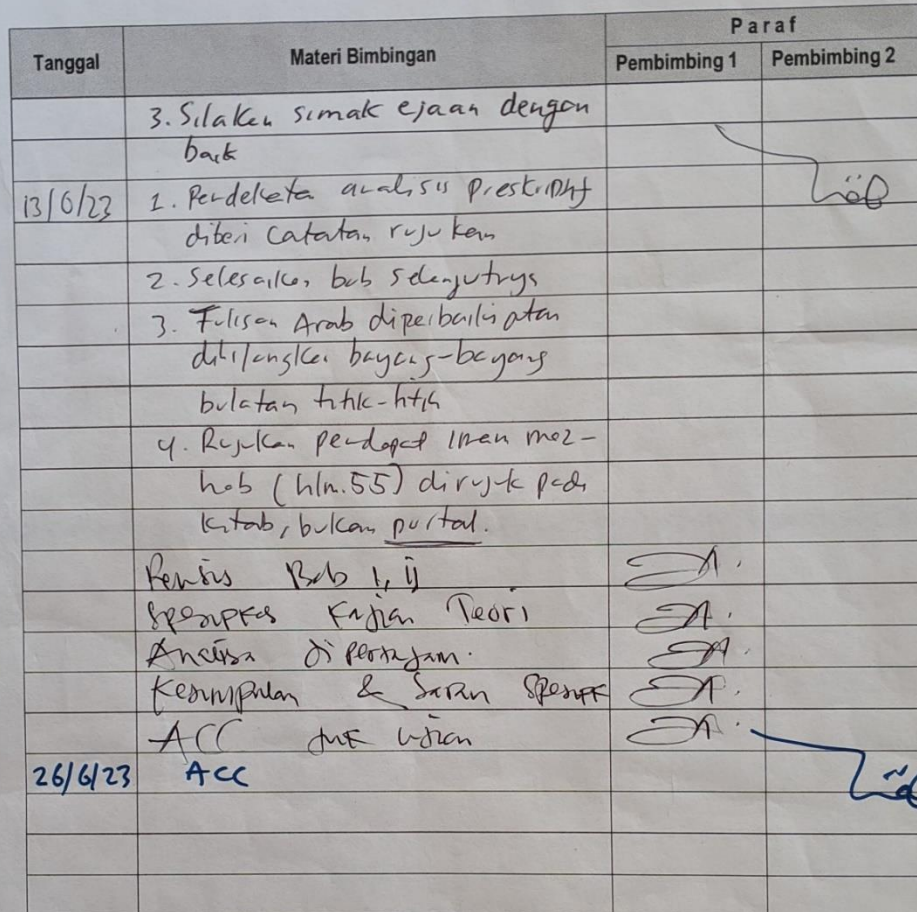 Tanggal Materi Bimbingan Paraf
Pembimbing 1 Pembimbing 2
3. Silaken simak ejaan dengan
baik
13/6/23 1. Pendeketan analisis preskriptif
diberi Catatan rujukan
2. Selesaikan bab selanjutnya
3. Tulisan Arab diperbaiki atau
dihilangkan bayang-bayang
bulatan titik-titik
4. Rujukan pendapat Imam maz-
hab (hlm.55) dirujuk pada
kitab, bukan portal.
Revisi Bab I, II
Spesifikas Kajian Teori
Analisa dipertajam.
Kesimpulan & Saran Spesifik
ACC ujian
26/6/23 ACC